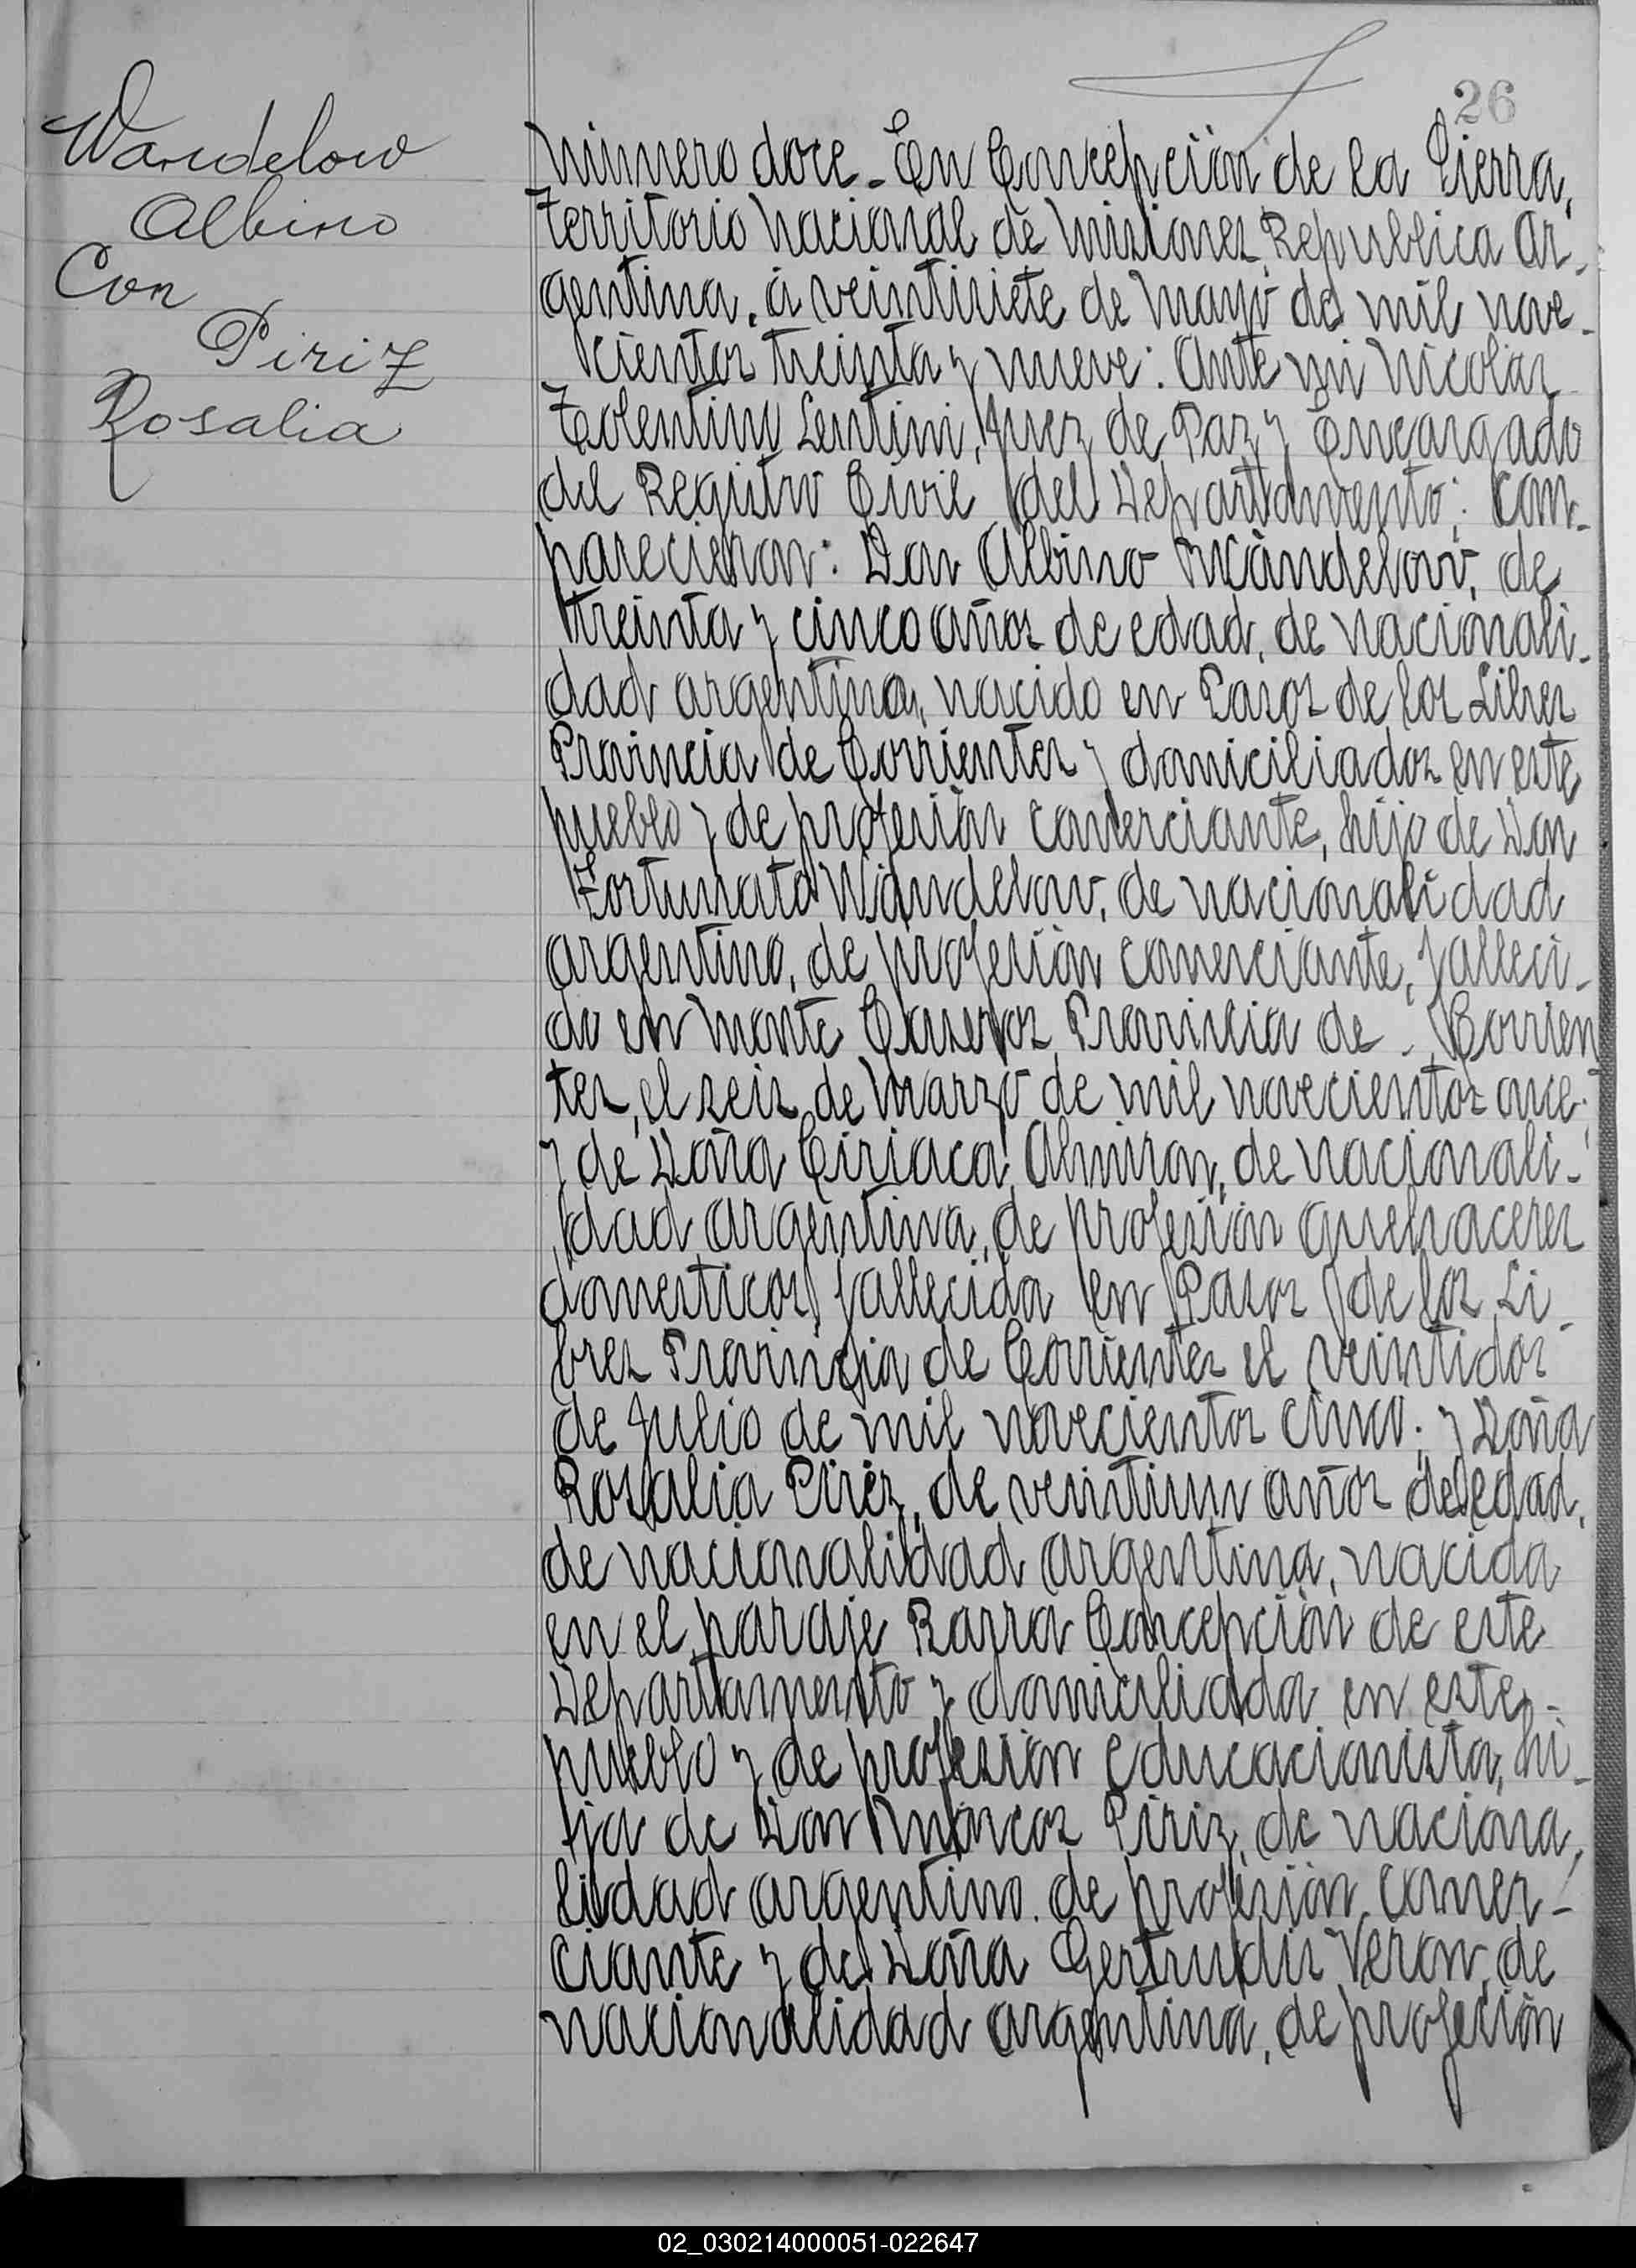 26
Wandelow
Albino
Con
Piriz
Rosalia
Número doce. En Concepción de la Sierra,
Territorio Nacional de Misiones, Republica Ar-
gentina, á veintisiete de Mayo de mil nove-
cientos treinta y nueve: Ante mi Nicolas
Tolentino Lentini, Juez de Paz y Encargado
del Registro Civil del Departamento; Com-
parecieron: Don Albino Wandelow, de
treinta y cinco años de edad, de nacionali-
dad argentina, nacido en Pasos de los Libres
Provincia de Corrientes y domiciliados en este
pueblo y de profesión comerciante, hijo de Don
Fortunato Wandelow, de nacionalidad
argentino, de profesión comerciante, falleci-
do en Monte Caseros Provincia de - Corrien
tes, el seis de Marzo de mil novecientos once
y de Doña Ciriaca Almiron, de nacionali-
dad argentina, de profesión quehaceres
domesticos, fallecida en Pasos de los Li-
bres Provincia de Corrientes el veintidos
de Julio de mil novecientos cinco; y Doña
Rosalia Piriz, de veintiun años de edad,
de nacionalidad argentina, nacida
en el paraje Barra Concepción de este
Departamento y domiciliada en este -
pueblo y de profesión educacionista, hi-
ja de Don Marcos Piriz, de naciona
lidad argentino. de profesión comer-
ciante y de Doña Gertrudis Veron, de
nacionalidad argentina, de profeción
02_030214000051-022647